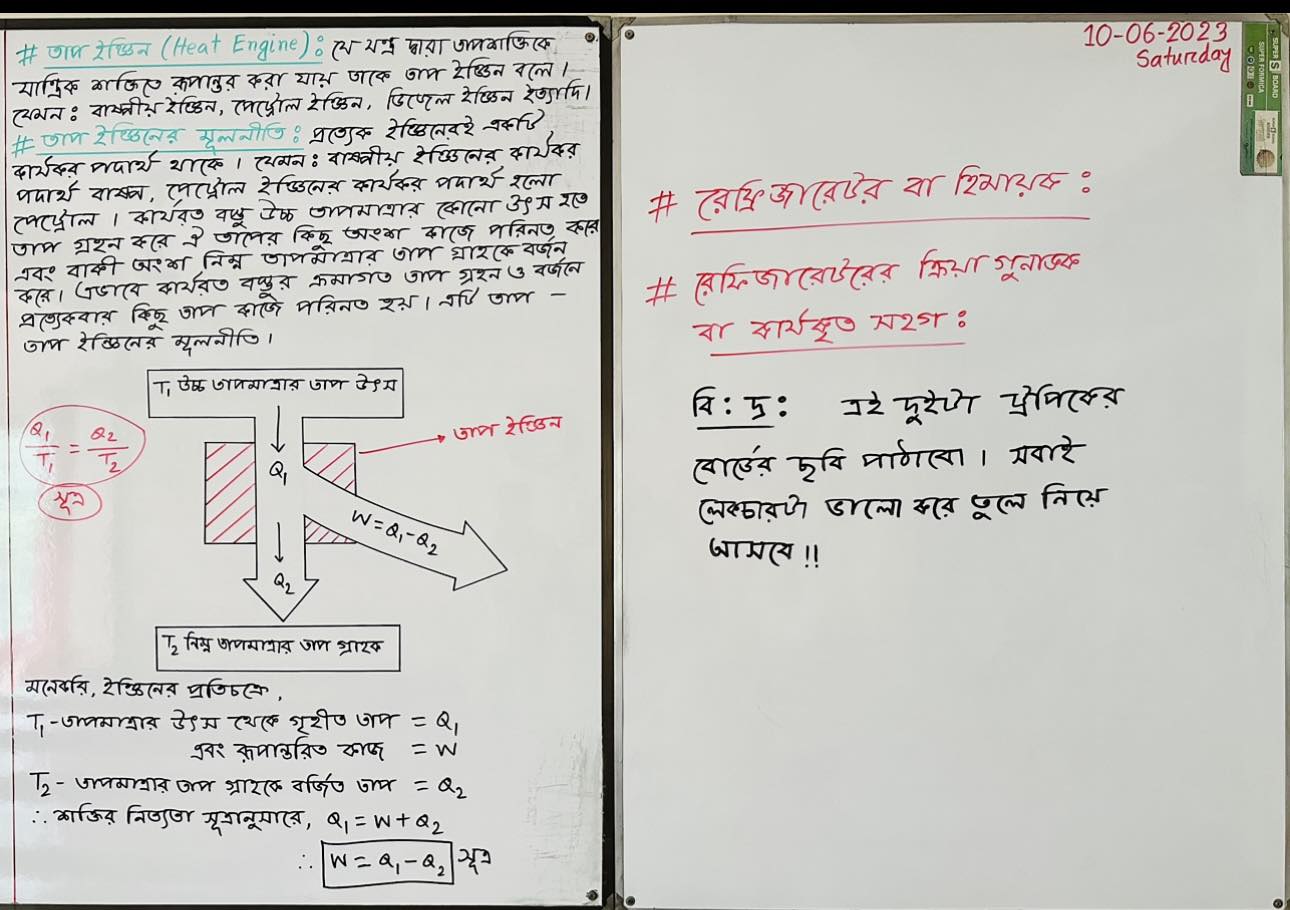 # তাপ ইঞ্জিন (Heat Engine): যে যন্ত্র দ্বারা তাপশক্তিকে
যান্ত্রিক শক্তিতে রূপান্তর করা যায় তাকে তাপ ইঞ্জিন বলে।
যেমন: বাষ্পীয় ইঞ্জিন, পেট্রোল ইঞ্জিন, ডিজেল ইঞ্জিন ইত্যাদি।
# তাপ ইঞ্জিনের মূলনীতি: প্রত্যেক ইঞ্জিনেরই একটি
কার্যকর পদার্থ থাকে। যেমন: বাষ্পীয় ইঞ্জিনের কার্যকর
পদার্থ বাষ্প, পেট্রোল ইঞ্জিনের কার্যকর পদার্থ হলো
পেট্রোল। কার্যরত বস্তু উচ্চ তাপমাত্রার কোনো উৎস হতে
তাপ গ্রহন করে ঐ তাপের কিছু অংশ কাজে পরিনত করে
এবং বাকী অংশ নিম্ন তাপমাত্রার তাপ গ্রাহকে বর্জন
করে। এভাবে কার্যরত বস্তুর ক্রমাগত তাপ গ্রহন ও বর্জনে
প্রত্যেকবার কিছু তাপ কাজে পরিনত হয়। এটি তাপ -
তাপ ইঞ্জিনের মূলনীতি।
T₁ উচ্চ তাপমাত্রার তাপ উৎস
Q₁/T₁ = Q₂/T₂
সূত্র
তাপ ইঞ্জিন
Q₁
W = Q₁ - Q₂
Q₂
T₂ নিম্ন তাপমাত্রার তাপ গ্রাহক
মনেকরি, ইঞ্জিনের প্রতিচক্রে,
T₁ - তাপমাত্রার উৎস থেকে গৃহীত তাপ = Q₁
এবং রূপান্তরিত কাজ = W
T₂ - তাপমাত্রার তাপ গ্রাহকে বর্জিত তাপ = Q₂
∴ শক্তির নিত্যতা সূত্রানুসারে, Q₁ = W + Q₂
∴ W = Q₁ - Q₂ সূত্র
10-06-2023
Saturday
SUPER S BOARD
SUPER FORMICA
# রেফ্রিজারেটর বা হিমায়ক:
# রেফিজারেটরের ক্রিয়া গুনাঙ্ক
বা কার্যকৃত সহগ:
বি: দ্র: এই দুইটা টপিকের
বোর্ডের ছবি পাঠাবো। সবাই
লেকচারটা ভালো করে তুলে নিয়ে
আসবে!!